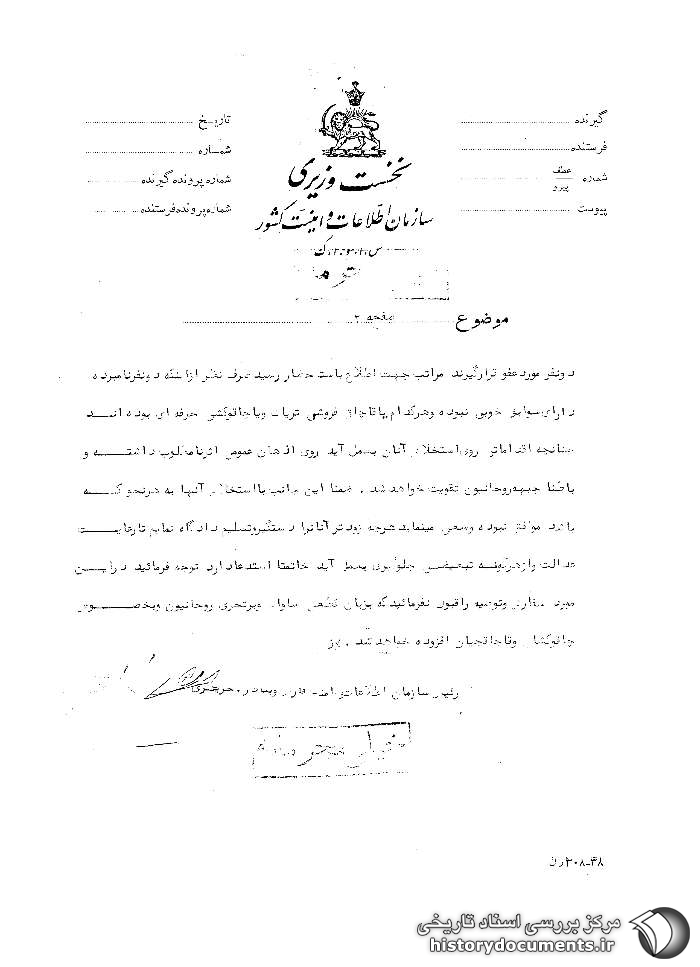 گیرنده
فرستنده
شماره عطف پیرو
پیوست
تاریخ
شماره
شماره پرونده گیرنده
شماره پرونده فرستنده
نخست وزیری
سازمان اطلاعات و امنیت کشور
موضوع صفحه ۲
دونفر مورد عفو قرارگیرند مراتب جهت اطلاع باستحضار رسید صرف نظر از اینکه دونفرنامبرده
دارای سوابق خوبی نبوده وهرکدام یا قاچاق فروشی تریاک ویا چاقوکشی حرفه ای بوده اند
چنانچه اقداماتی روی استخلاص آنان بعمل آید روی اذهان عمومی اثرنامطلوب داشته و
باطنا جبهه روحانیون تقویت خواهد شد . ضمنا این جانب با استخلاص آنها به هرنحو که
باشد موافق نبوده وسعی مینماید هرچه زودتر آنانرا دستگیروتسلیم دادگاه نمایم تارعایت
عدالت وازهرگونه تبعیضی جلوگیری بعمل آید خاتمتا استدعا دارد توجه فرمائید در این
مورد سفارش وتوصیه راقبول نفرمائید که بزیان قطعی ساواک وبرتجری روحانیون وبخصوص
چاقوکشان وقاچاقچیان افزوده خواهد شد .
رئیس سازمان اطلاعات و امنیت فارس وبنادر
۳۰۸-۴۸
مرکز بررسی اسناد تاریخی
historydocuments.ir